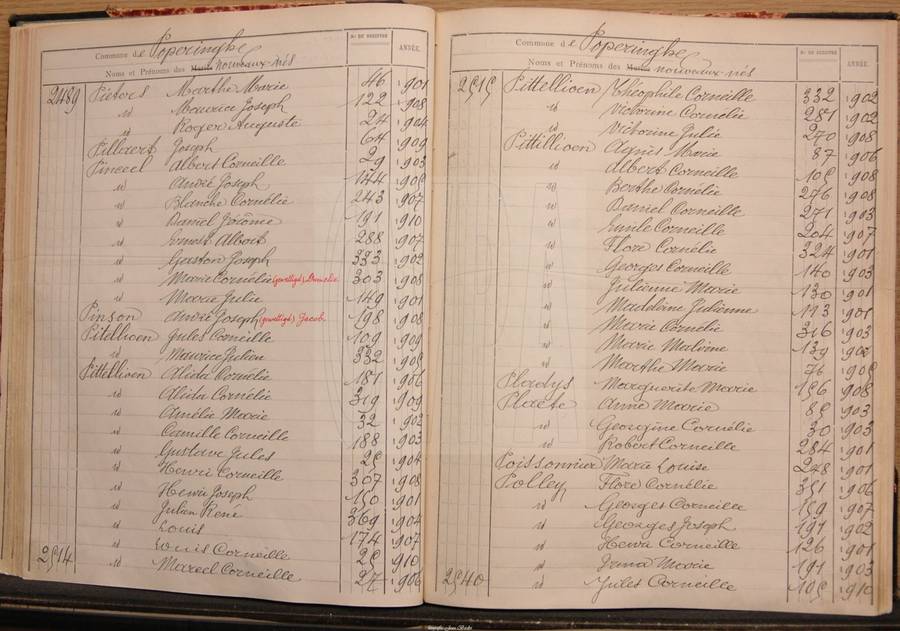 Commune de Poperinghe
Noms et Prénoms des Mariés nouveaux-nés
Nos DU REGISTRE ANNÉE.
2489 Pieters Marthe Marie 46 1901
id Maurice Joseph 122 1908
id Roger Auguste 24 1904
Pillaert Joseph 64 1909
Pinceel Albert Corneille 2 1903
id André Joseph 29 1905
id Blanche Cornélie 144 1907
id Daniel Jérôme 243 1910
id Ernest Albert 191 1907
id Gaston Joseph 288 1902
id Marie Cornélie (gewettigd) 303 1908
id Marie Julie 149 1901
Pinson André Joseph (gewettigd) Jacob 198 1908
Pitellioen Jules Corneille 109 1909
id Maurice Julien 332 1905
Pittellioen Alida Cornélie 181 1906
id Alida Cornélie 319 1909
id Amélie Marie 32 1902
id Camille Corneille 188 1903
id Gustave Jules 25 1904
id Henri Corneille 307 1908
id Henri Joseph 150 1901
id Julien René 369 1904
id Louis 174 1907
id Louis Corneille 25 1910
2514 id Marcel Corneille 27 1906
Commune de Poperinghe
Noms et Prénoms des Mariés nouveaux-nés
Nos DU REGISTRE ANNÉE.
2515 Pittellioen Théophile Corneille 332 1902
id Victorine Cornélie 281 1902
id Victorine Julie 270 1908
Pittillioen Agnès Marie 87 1906
id Albert Corneille 105 1908
id Berthe Cornélie 276 1908
id Daniel Corneille 271 1903
id Emile Corneille 204 1907
id Flore Cornélie 324 1901
id Georges Corneille 140 1903
id Julienne Marie 130 1901
id Madeleine Julienne 113 1901
id Marie Cornélie 316 1903
id Marie Malvine 139
id Marthe Marie 76 1905
Pladys Marguerite Marie 156 1908
Plaete Anna Marie 85 1903
id Georgine Cornélie 30 1903
id Robert Corneille 284 1901
Poissonnier Marie Louise 248 1901
Polley Flore Cornélie 351 1906
id Georges Corneille 159 1907
id Georges Joseph 197 1902
id Henri Corneille 126 1901
id Irma Marie 191 1903
2540 id Jules Corneille 105 1910